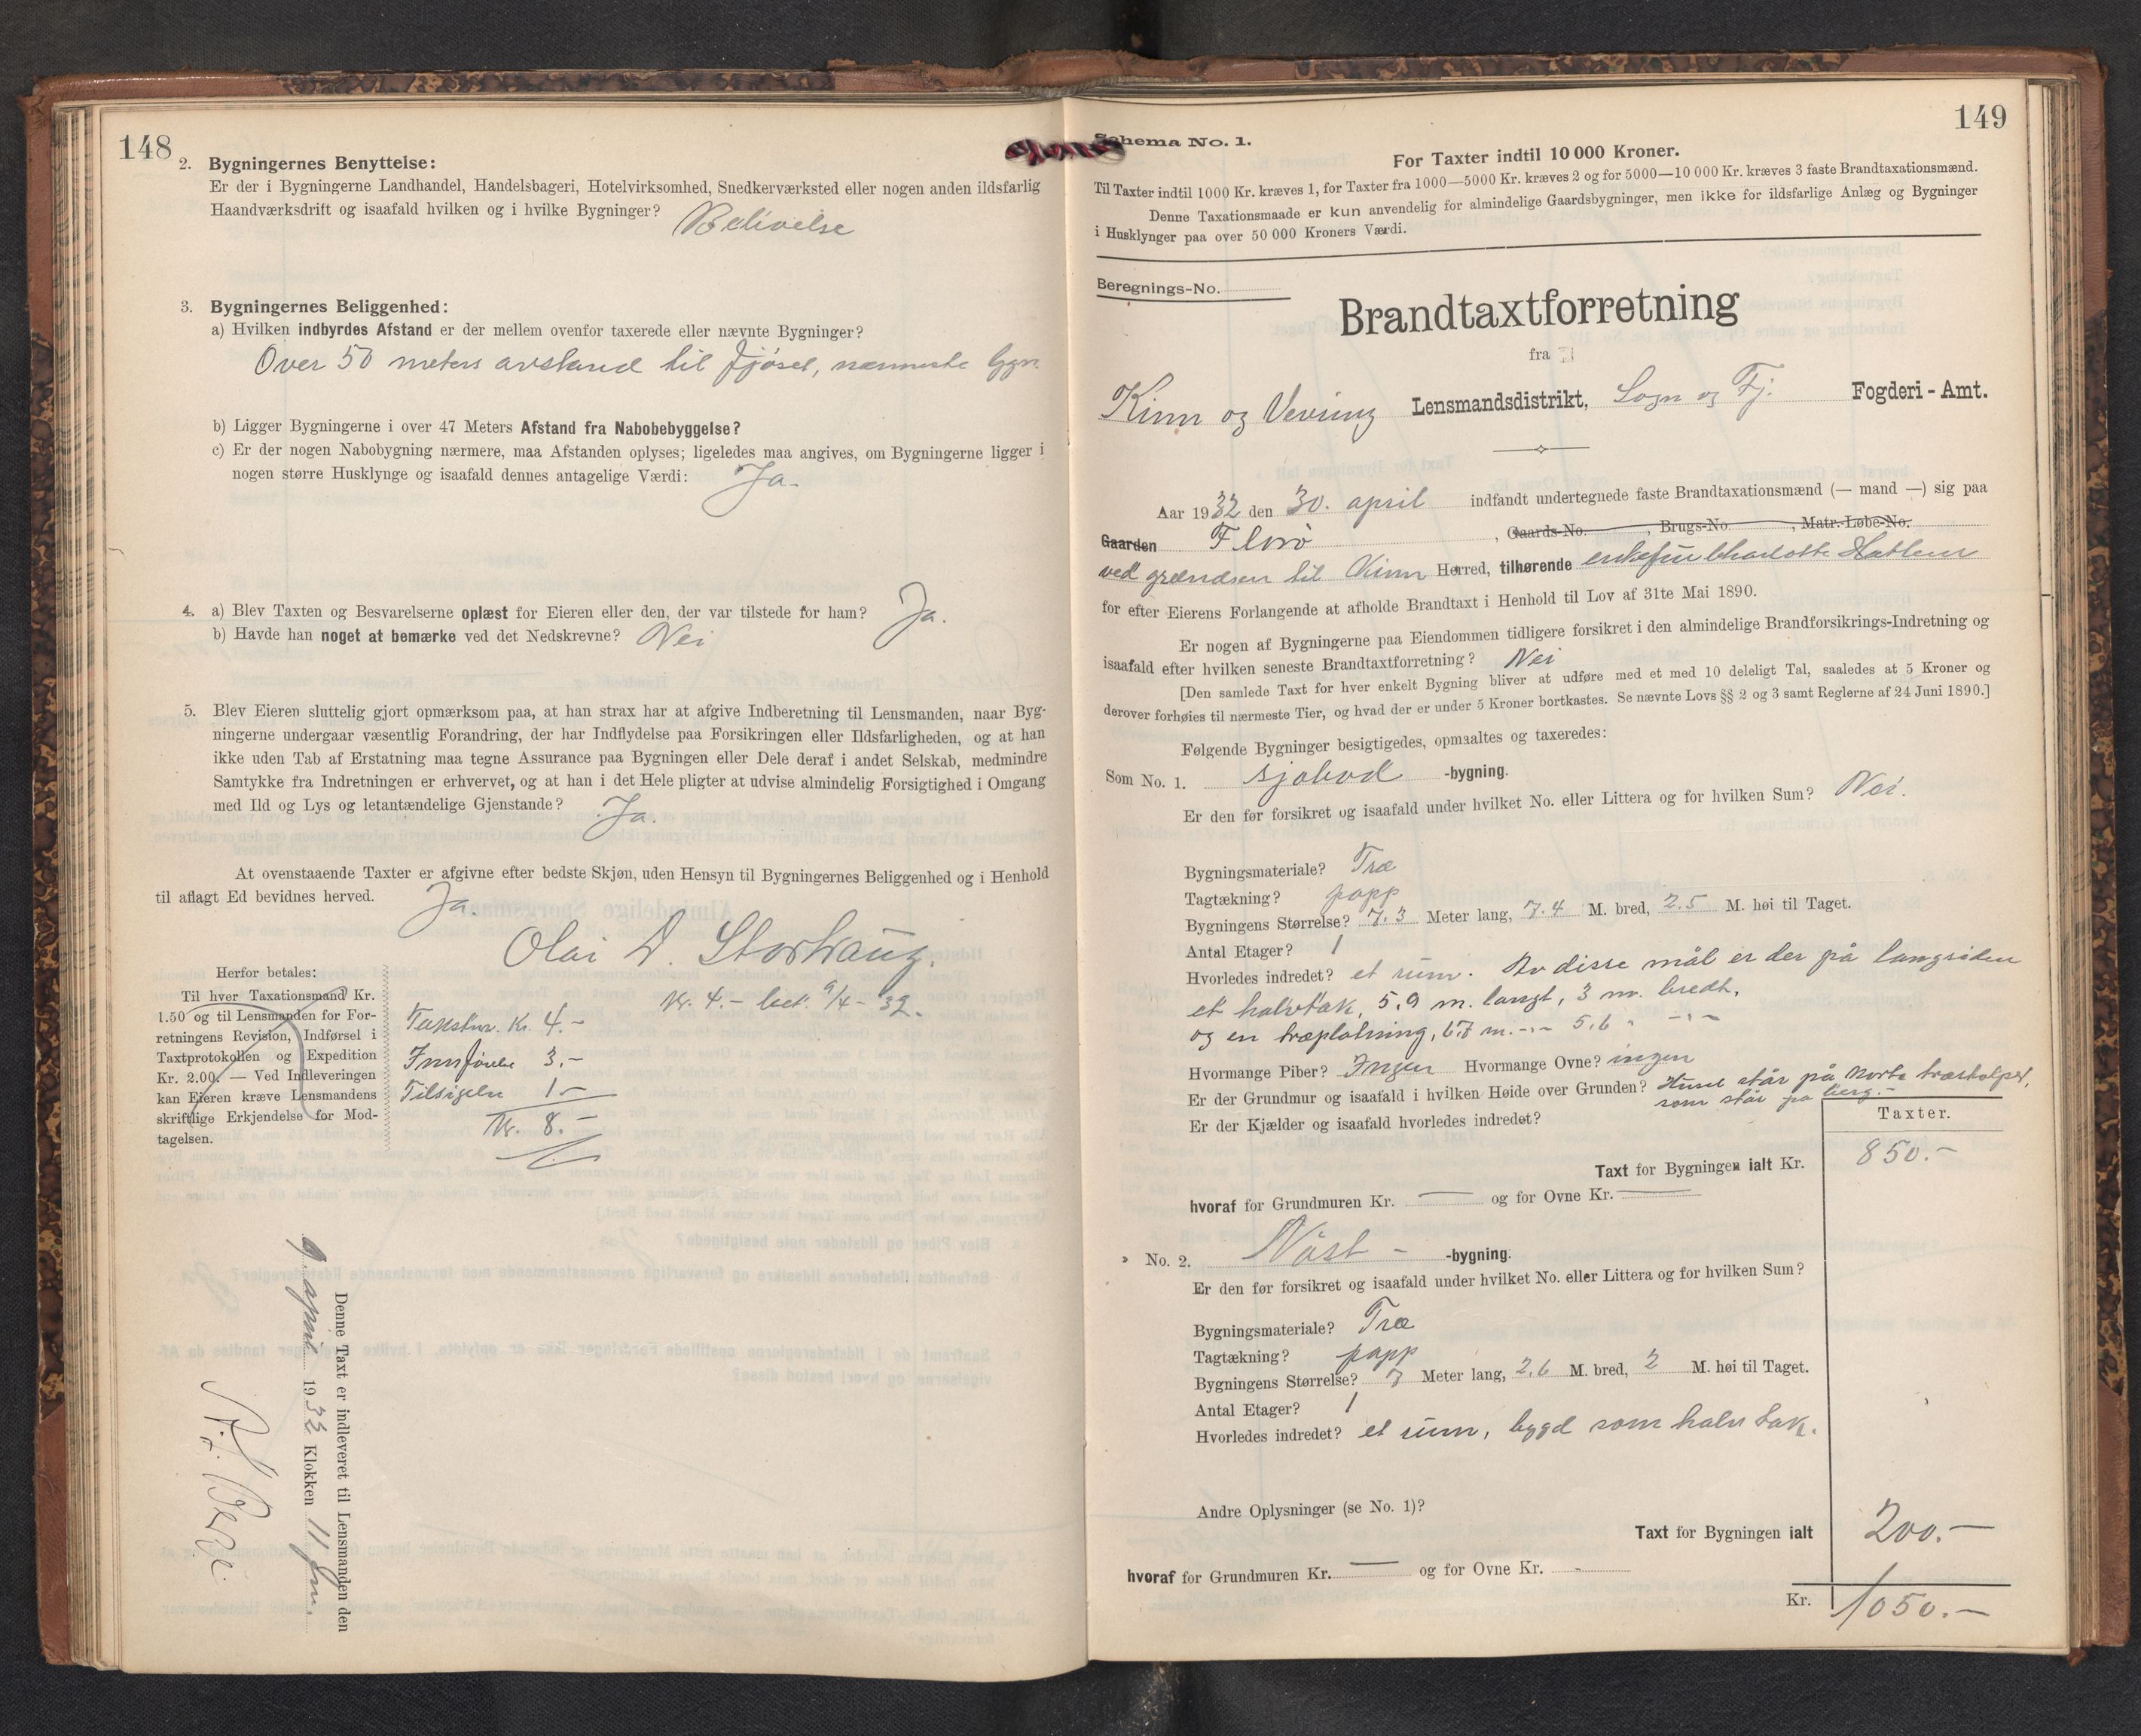 148
2. Bygningernes Benyttelse:
Er der i Bygningerne Landhandel, Handelsbageri, Hotelvirksomhed, Snedkerværksted eller nogen anden ildsfarlig
Haandværksdrift og isaafald hvilken og i hvilke Bygninger? Belivelse
3. Bygningernes Beliggenhed:
a) Hvilken indbyrdes Afstand er der mellem ovenfor taxerede eller nævnte Bygninger?
Over 50 meters avstand til fjöset, nærmeste bygn.
b) Ligger Bygningerne i over 47 Meters Afstand fra Nabobebyggelse?
c) Er der nogen Nabobygning nærmere, maa Afstanden oplyses; ligeledes maa angives, om Bygningerne ligger i
nogen større Husklynge og isaafald dennes antagelige Værdi: Ja.
4. a) Blev Taxten og Besvarelserne oplæst for Eieren eller den, der var tilstede for ham? Ja.
b) Havde han noget at bemærke ved det Nedskrevne? Nei
5. Blev Eieren sluttelig gjort opmærksom paa, at han strax har at afgive Indberetning til Lensmanden, naar Byg-
ningerne undergaar væsentlig Forandring, der har Indflydelse paa Forsikringen eller Ildsfarligheden, og at han
ikke uden Tab af Erstatning maa tegne Assurance paa Bygningen eller Dele deraf i andet Selskab, medmindre
Samtykke fra Indretningen er erhvervet, og at han i det Hele pligter at udvise almindelig Forsigtighed i Omgang
med Ild og Lys og letantændelige Gjenstande? Ja.
At ovenstaaende Taxter er afgivne efter bedste Skjøn, uden Hensyn til Bygningernes Beliggenhed og i Henhold
til aflagt Ed bevidnes herved. Ja.
Olai D. Storhaug.
Kr. 4.- bet. 9/4-32.
Herfor betales:
Til hver Taxationsmand Kr.
1.50 og til Lensmanden for For-
retningens Revision, Indførsel i
Taxtprotokollen og Expedition
Kr. 2.00. — Ved Indleveringen
kan Eieren kræve Lensmandens
skriftlige Erkjendelse for Mod-
tagelsen.
Takstm. Kr. 4.-
Innførelse 3.-
Tilsigelse 1-
Kr. 8.-
Denne Taxt er indleveret til Lensmanden den
9. april 1932 Klokken 11 fm.
Berge.
149
Schema No. 1.
For Taxter indtil 10 000 Kroner.
Til Taxter indtil 1000 Kr. kræves 1, for Taxter fra 1000—5000 Kr. kræves 2 og for 5000—10 000 Kr. kræves 3 faste Brandtaxationsmænd.
Denne Taxationsmaade er kun anvendelig for almindelige Gaardsbygninger, men ikke for ildsfarlige Anlæg og Bygninger
i Husklynger paa over 50 000 Kroners Værdi.
Beregnings-No.
Brandtaxtforretning
fra
Kinn og Vevring Lensmandsdistrikt, Sogn og Fj. Fogderi - Amt.
Aar 1932 den 30. april indfandt undertegnede faste Brandtaxationsmænd (— mand —) sig paa
Gaarden Florö, Gaards-No. , Brugs-No. , Matr.-Løbe-No.
ved grændsen til Kinn Herred, tilhørende enkefru Charlotte Hatlem
for efter Eierens Forlangende at afholde Brandtaxt i Henhold til Lov af 31te Mai 1890.
Er nogen af Bygningerne paa Eiendommen tidligere forsikret i den almindelige Brandforsikrings-Indretning og
isaafald efter hvilken seneste Brandtaxtforretning? Nei
[Den samlede Taxt for hver enkelt Bygning bliver at udføre med et med 10 deleligt Tal, saaledes at 5 Kroner og
derover forhøies til nærmeste Tier, og hvad der er under 5 Kroner bortkastes. Se nævnte Lovs §§ 2 og 3 samt Reglerne af 24 Juni 1890.]
Følgende Bygninger besigtigedes, opmaaltes og taxeredes:
Som No. 1. sjøbod -bygning.
Er den før forsikret og isaafald under hvilket No. eller Littera og for hvilken Sum? Nei.
Bygningsmateriale? Træ
Tagtækning? papp
Bygningens Størrelse? 7.3 Meter lang, 7.4 M. bred, 2.5 M. høi til Taget.
Antal Etager? 1
Hvorledes indredet? et rum. Av disse mål er der på langsiden
et halvtak, 5.9 m. langt, 3 m. bredt,
og en træplatning, 6.7 m. -"- 5.6 " -"-
Hvormange Piber? Ingen Hvormange Ovne? ingen
Er der Grundmur og isaafald i hvilken Høide over Grunden? Huset står på korte træstolper,
som står på berg.-
Er der Kjælder og isaafald hvorledes indredet?
Taxter.
Taxt for Bygningen ialt Kr. 850.-
hvoraf for Grundmuren Kr. — og for Ovne Kr. —
" No. 2. Nöst - -bygning.
Er den før forsikret og isaafald under hvilket No. eller Littera og for hvilken Sum?
Bygningsmateriale? Træ
Tagtækning? papp
Bygningens Størrelse? 7 Meter lang, 2.6 M. bred, 2 M. høi til Taget.
Antal Etager? 1
Hvorledes indredet? et rum, bygd som halvtak.
Andre Oplysninger (se No. 1)?
Taxt for Bygningen ialt 200.-
hvoraf for Grundmuren Kr. — og for Ovne Kr. -
Kr. 1050.-